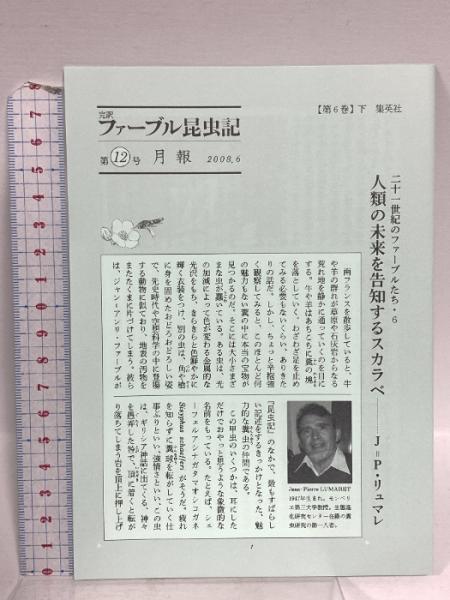 【第6巻】下 集英社
完訳
ファーブル昆虫記
第12号 月報 2008.6
二十一世紀のファーブルたち・6
人類の未来を告知するスカラベ
J=P・リュマレ
南フランスを散歩していると、牛
や羊の群れが草原や石灰岩からなる
荒れ地を静かに通っていくのを目に
する。牛や羊はあちこちに糞の塊
を落としていく。わざわざ足を止め
てみる必要もないくらい、ありきた
りの話だ。しかし、ちょっと辛抱強
く観察してみると、このほとんど何
の魅力もない糞の中に本当の宝物が
見つかるのだ。そこには大小さまざ
まな虫が蠢いている。ある虫は、光
の加減によって色が変わる金属的な
光沢をもち、きらきらと色鮮やかに
輝く衣装をつけ、別の虫は、角や槍
に身を固めたおどろおどろしい姿
で、先史時代や空想科学の中に登場
する動物に似ており、地表の汚物を
またたくまに片づけてしまう。彼ら
は、ジャン=アンリ・ファーブルが
『昆虫記』のなかで、最もすばらし
い記述をするきっかけとなった、魅
力的な糞虫の仲間である。
この甲虫のいくつかは、耳にした
だけでおやっと思うような象徴的な
名前をもっている。たとえば、シェ
ーフェルアシナガタマオシコガネ
Sisyphus schaefferi がそうだ。疲れ
を知らずに糞球を転がしていく仕
事ぶりといい、強情さといい、この虫
は、ギリシア神話に出てくる、神々
を愚弄した廉で、頂に着くと転が
り落ちてしまう岩を頂上に押し上げ
Jean-Pierre LUMARET
1947年生まれ。モンペリ
エ第三大学教授。生態進
化研究センター在籍の糞
虫研究の第一人者。
1